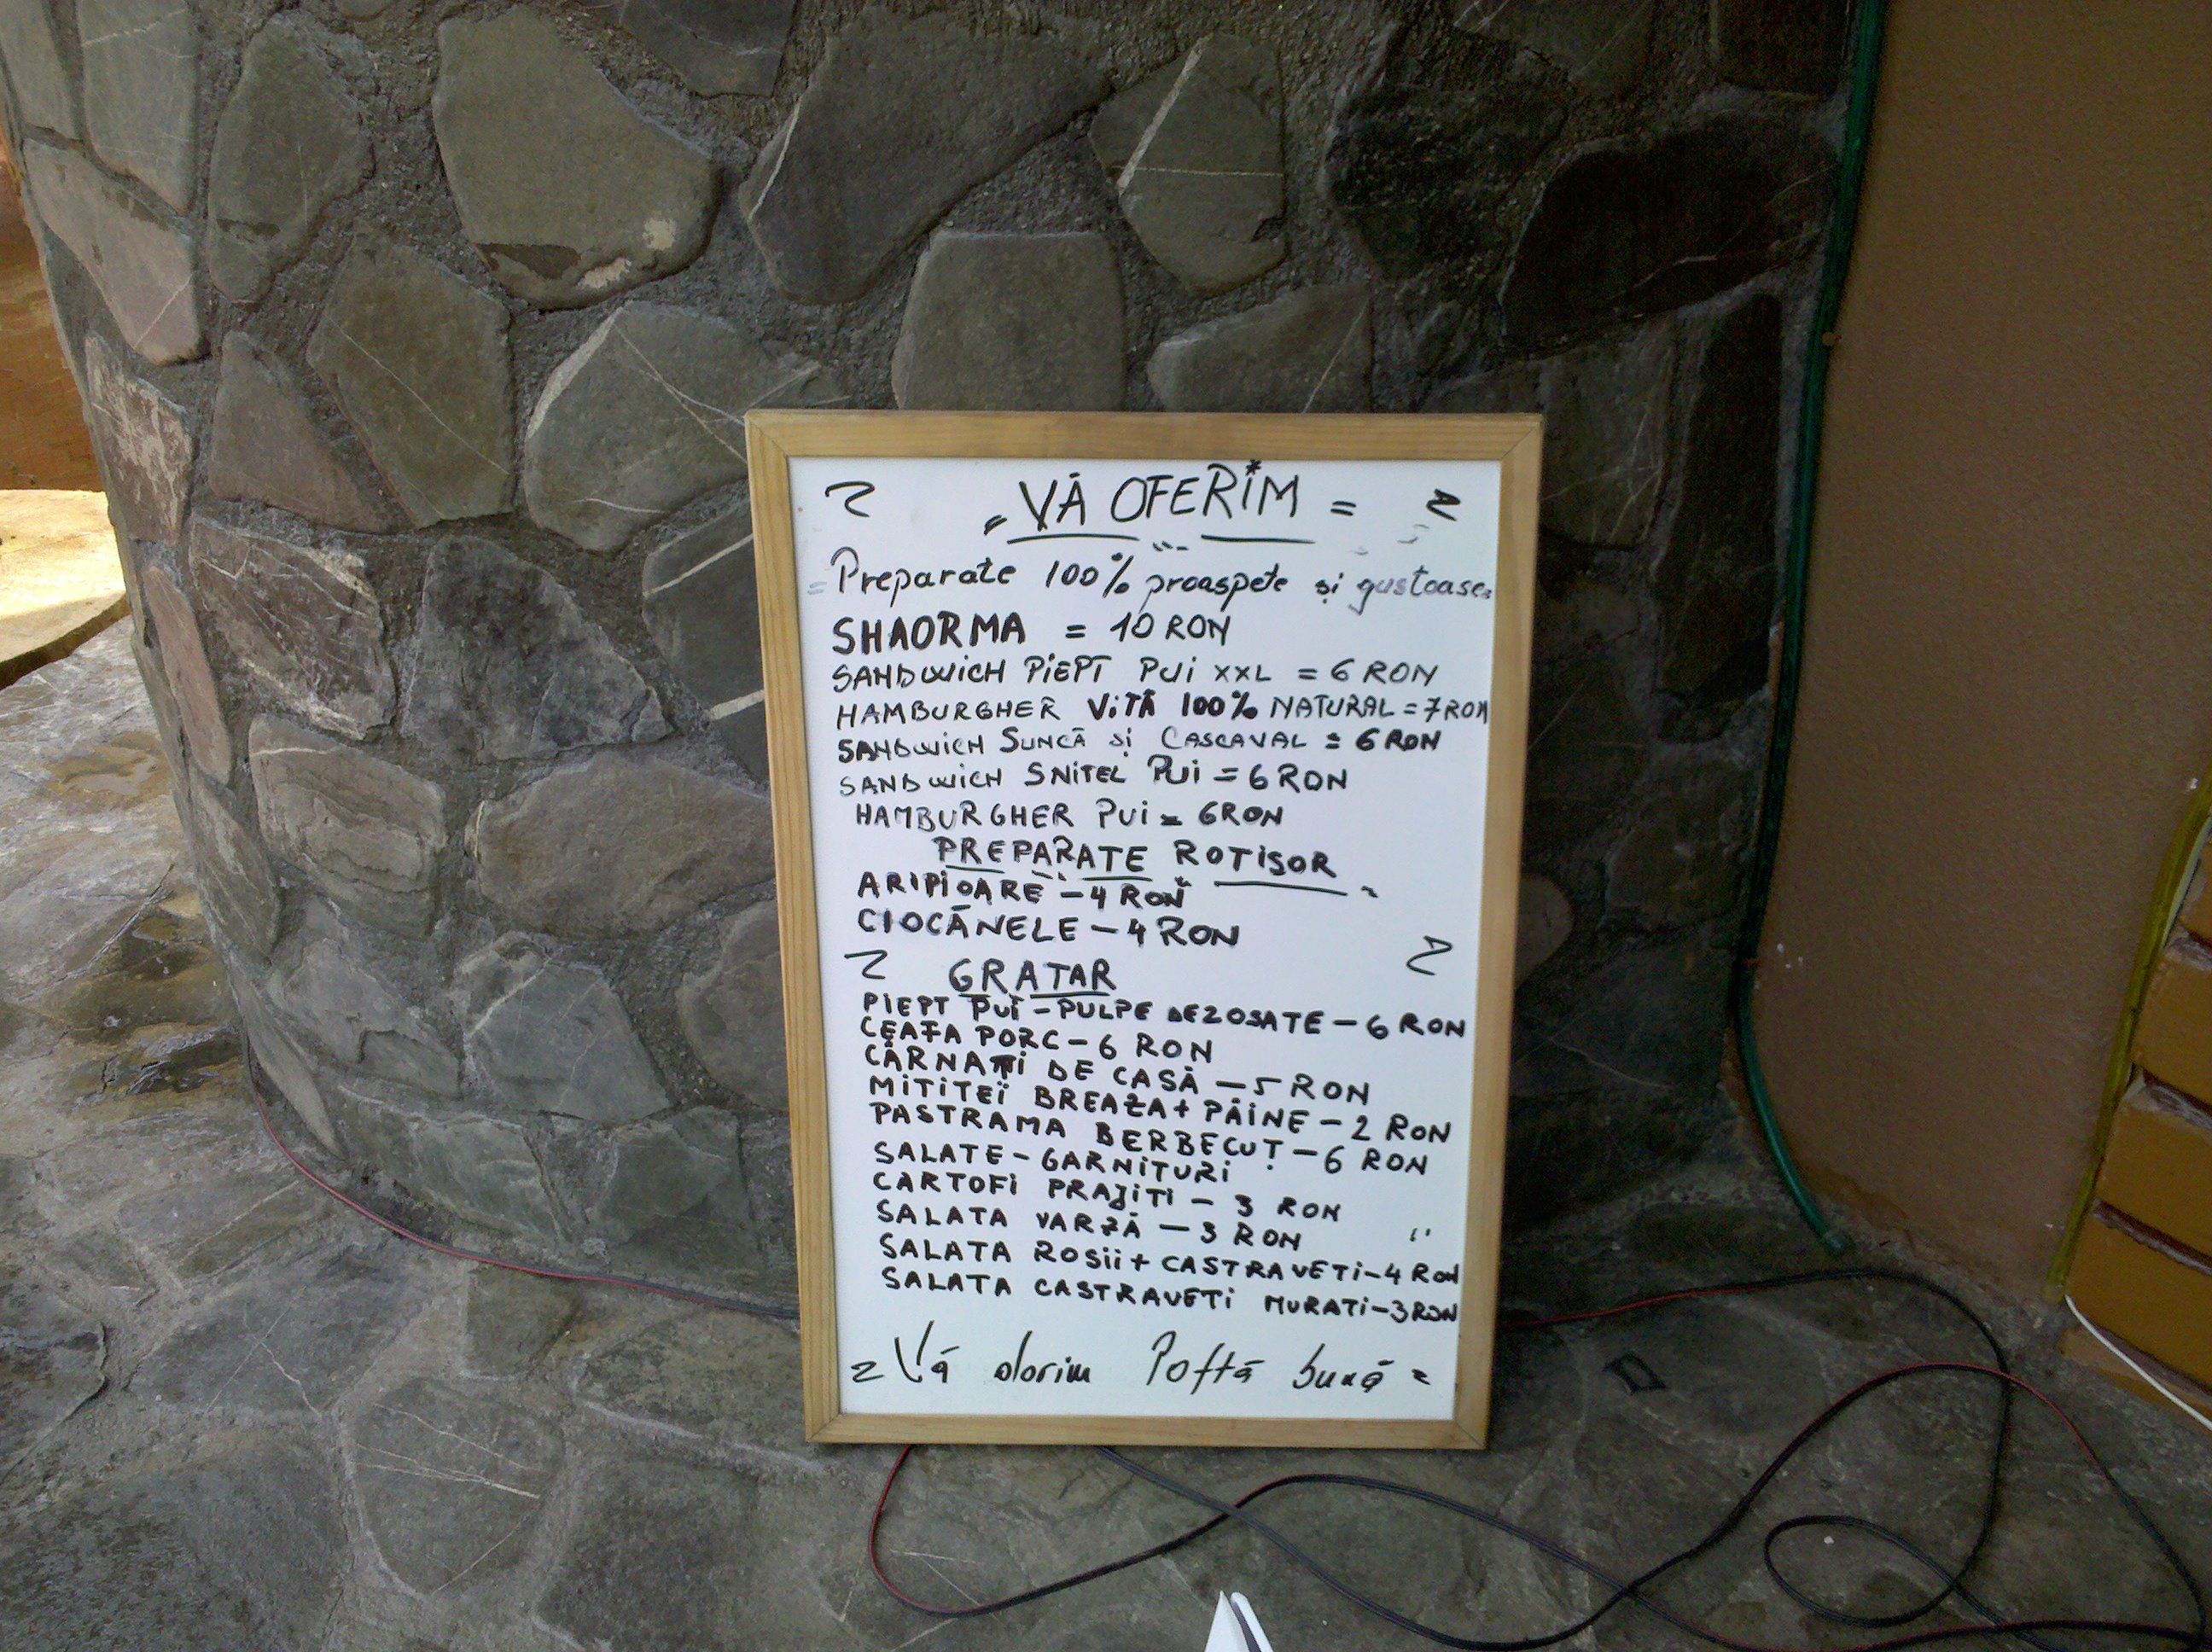 VĂ OFERIM =
= Preparate 100% proaspete și gustoase
SHAORMA = 10 RON
SANDWICH PIEPT PUI XXL = 6 RON
HAMBURGHER VITĂ 100% NATURAL = 7 RON
SANDWICH SUNCĂ și CASCAVAL = 6 RON
SANDWICH SNITEL PUI = 6 RON
HAMBURGHER PUI = 6 RON
PREPARATE ROTISOR
ARIPIOARE - 4 RON
CIOCĂNELE - 4 RON
GRATAR
PIEPT PUI - PULPE DEZOSATE - 6 RON
CEAFA PORC - 6 RON
CÂRNAȚI DE CASĂ - 5 RON
MITITEI BREAZA + PÂINE - 2 RON
PASTRAMA BERBECUȚ - 6 RON
SALATE - GARNITURI
CARTOFI PRAJITI - 3 RON
SALATA VARZĂ - 3 RON
SALATA ROSII + CASTRAVETI - 4 RON
SALATA CASTRAVETI MURATI - 3 RON
Vă dorim Poftă bună